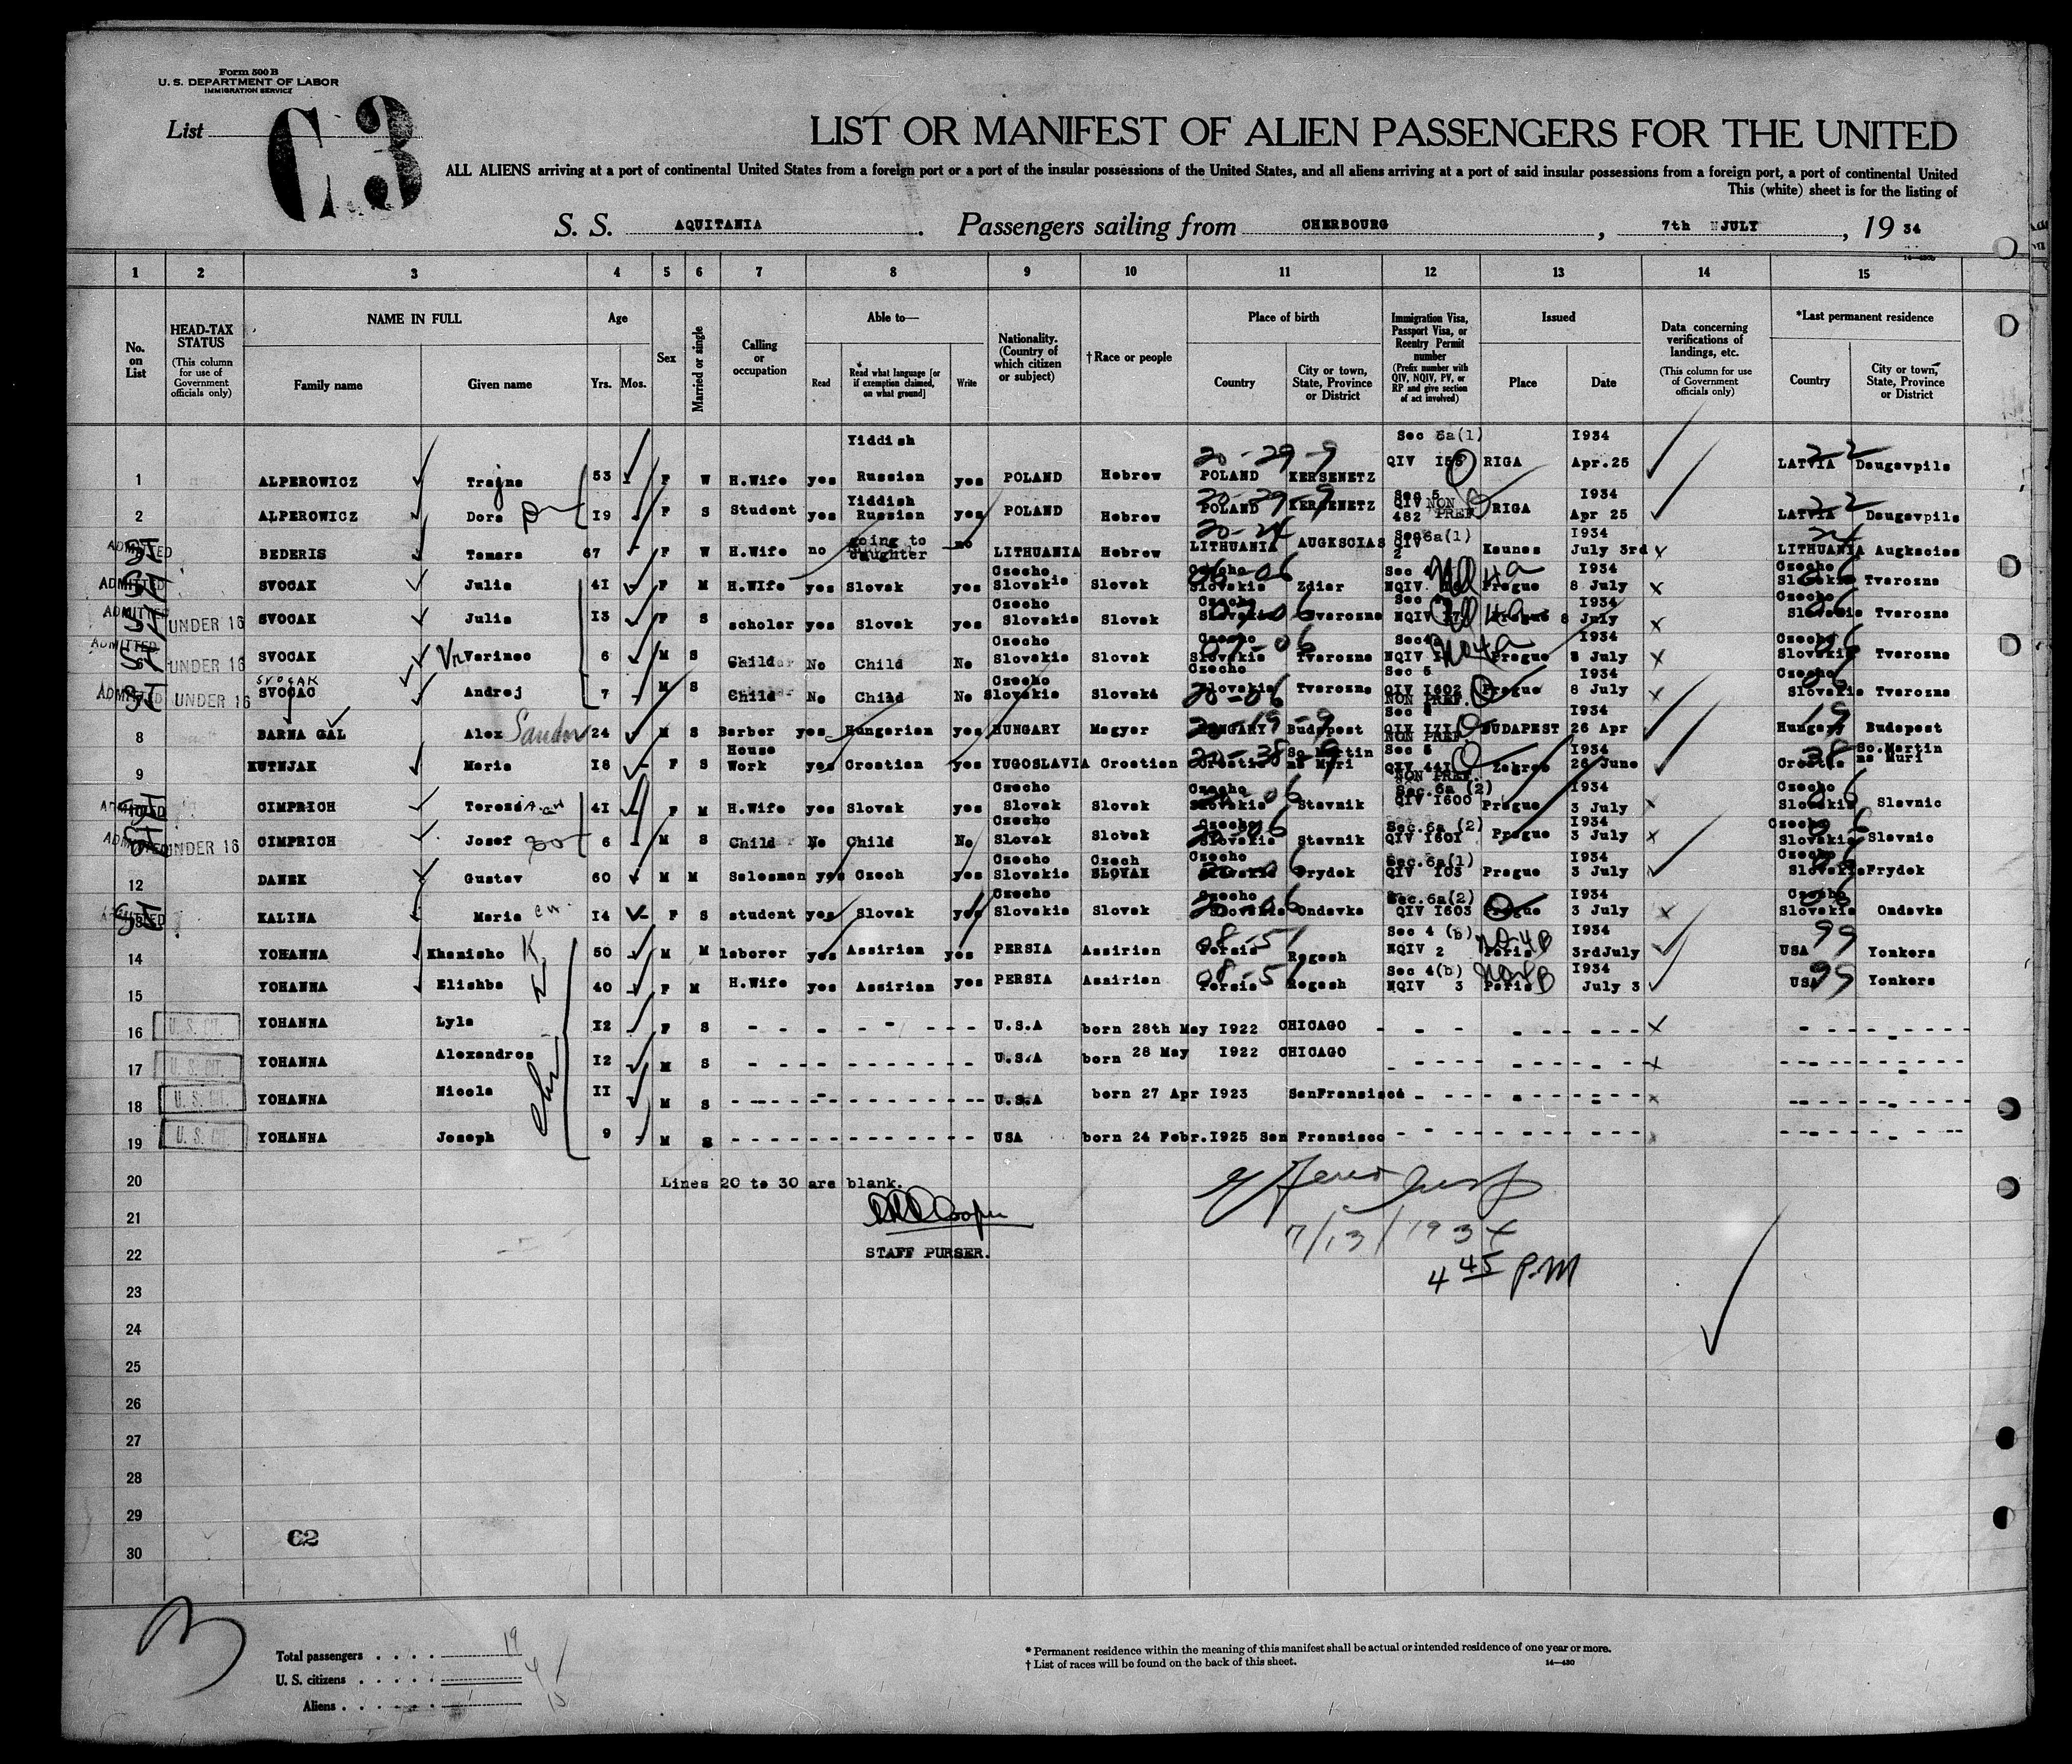 Form 500 B
U. S. DEPARTMENT OF LABOR
IMMIGRATION SERVICE
List C3
LIST OR MANIFEST OF ALIEN PASSENGERS FOR THE UNITED
ALL ALIENS arriving at a port of continental United States from a foreign port or a port of the insular possessions of the United States, and all aliens arriving at a port of said insular possessions from a foreign port, a port of continental United
This (white) sheet is for the listing of
S. S. AQUITANIA. Passengers sailing from CHERBOURG, 7th JULY, 19 34
1 2 3 4 5 6 7 8 9 10 11 12 13 14 15
No. on List
HEAD-TAX STATUS (This column for use of Government officials only)
NAME IN FULL Family name Given name
Age Yrs. Mos.
Sex
Married or single
Calling or occupation
Able to— Read Read what language [or if exemption claimed, on what ground] Write
Nationality. (Country of which citizen or subject)
†Race or people
Place of birth Country City or town, State, Province or District
Immigration Visa, Passport Visa, or Reentry Permit number (Prefix number with QIV, NQIV, PV, or RP and give section of act involved)
Issued Place Date
Data concerning verifications of landings, etc. (This column for use of Government officials only)
*Last permanent residence Country City or town, State, Province or District
1 ALPEROWICZ Trajna 53 F W H.Wife yes Yiddish Russian yes POLAND Hebrew POLAND KERSENETZ 20-29-9 Sec 6a(1) QIV RIGA 1934 Apr.25 LATVIA Daugavpils
2 ALPEROWICZ Dora 19 F S Student yes Yiddish Russian yes POLAND Hebrew POLAND KERSENETZ 20-29-9 Sec 5 QIV 482 NON PREF. RIGA 1934 Apr 25 LATVIA Daugavpils
ADMITTED BEDERIS Tamara 67 F W H.Wife no going to daughter no LITHUANIA Hebrew LITHUANIA AUGKSCIAS 20-24 Sec6a(1) QIV 2 Kaunas 1934 July 3rd x LITHUANIA Augkscias
ADMITTED SVOCAK Julia 41 F M H.Wife yes Slovak yes Czecho Slovakia Slovak Czecho Slovakia Zdiar Sec 4 NQIV Prague 1934 8 July x Czecho Slovakia Tverozna
ADMITTED UNDER 16 SVOCAK Julia 13 F S scholar yes Slovak yes Czecho Slovakia Slovak Czecho Slovakia Tverozna 07-06 NQIV Prague 1934 8 July x Czecho Slovakia Tverozna
ADMITTED 6 UNDER 16 SVOCAK Varinec 6 M S Child No Child No Czecho Slovakia Slovak Czecho Slovakia Tverozna 07-06 NQIV No4a Prague 1934 8 July x Czecho Slovakia Tverozna
ADMITTED 7 UNDER 16 SVOCAC SVOCAK Andrej 7 M S Child No Child No Czecho Slovakia Slovak Czecho Slovakia Tverozna 20-06 Sec 5 QIV 1602 NON PREF. Prague 1934 8 July x Czecho Slovakia Tverozna
8 BARNA GAL Alex Sandor 24 M S Barber yes Hungarian yes HUNGARY Magyar HUNGARY Budapest Sec 5 QIV NON PREF. BUDAPEST 1934 26 Apr Hungary Budapest
9 KUTNJAK Maria 18 F S House Work yes Croatian yes YUGOSLAVIA Croatian Croatia So.Martin na Muri Sec 5 QIV 441 NON PREF. Zagreb 1934 26 June Croatia So.Martin na Muri
ADMITTED 10 CIMPRICH Terezia 41 F M H.Wife yes Slovak yes Czecho Slovak Slovak Czecho Slovakia Stavnik Sec.6a (2) QIV 1600 Prague 1934 3 July x Czecho Slovakia Slavnic
ADMITTED UNDER 16 CIMPRICH Josef 6 M S Child No Child No Czecho Slovak Slovak Czecho Slovakia Stavnik 20-06 Sec.6a (2) QIV 1601 Prague 1934 3 July x Czecho Slovakia Slavnic
12 DANEK Gustav 60 M M Salesman yes Czech yes Czecho Slovakia Czech SLOVAK Czecho Slovakia Frydek Sec.6a(1) QIV 103 Prague 1934 3 July Czecho Slovakia Frydek
13 KALINA Maria 14 F S student yes Slovak yes Czecho Slovakia Slovak Slovakia Ondavka Sec.6a(2) QIV 1603 Prague 1934 3 July x Czecho Slovakia Ondavka
14 YOHANNA Khanisho 50 M M laborer yes Assirian yes PERSIA Assirian Persia Regesh 08-51 Sec 4 (b) NQIV 2 No-4B Paris 1934 3rdJuly USA 99 Yonkers
15 YOHANNA Elishba 40 F M H.Wife yes Assirian yes PERSIA Assirian Persia Regesh 08-51 Sec 4(b) NQIV 3 No4B Paris 1934 July 3 USA 99 Yonkers
16 U. S. CIT. YOHANNA Lyla 12 F S U.S.A born 28th May 1922 CHICAGO x
17 U. S. CIT. YOHANNA Alexandros 12 M S U.S.A born 28 May 1922 CHICAGO x
18 U. S. CIT. YOHANNA Nicola 11 M S U.S.A born 27 Apr 1923 SanFransisco x
19 U. S. CIT. YOHANNA Joseph 9 M S USA born 24 Febr.1925 San Fransisco x
20 Lines 20 to 30 are blank.
21 Cooper
7/13/1934
22 STAFF PURSER.
4 45 P.M
23
24
25
26
27
28
29
C2
30
Total passengers . . . . 19
U. S. citizens . . . . . 4
Aliens . . . . 15
* Permanent residence within the meaning of this manifest shall be actual or intended residence of one year or more.
† List of races will be found on the back of this sheet.
14—430